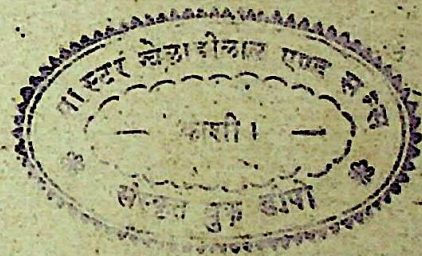 मास्टर खेलाड़ीलाल एण्ड सन्स
— काशी । —
संस्कृत बुक डीपो